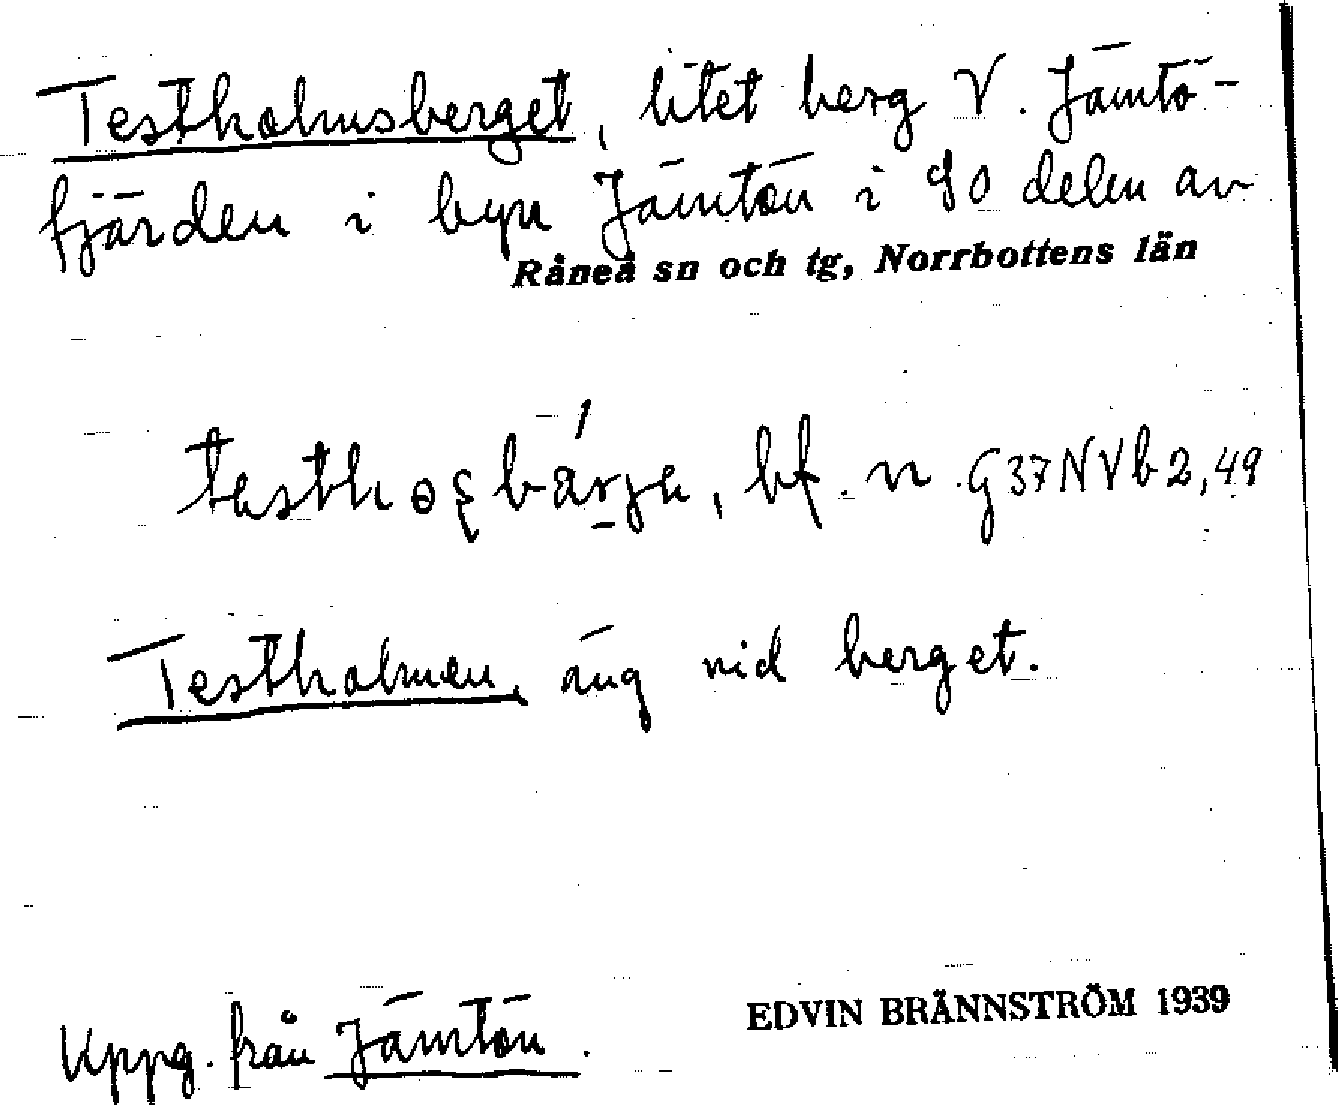 Testholmsberget, litet berg V. Jämtö-
fjärden i byn Jämtön i SO delen av
Råneå sn och tg, Norrbottens län
bf. n G37NVb2,49
Testholmen, äng vid berget.
Uppg. från Jämtön.
EDVIN BRÄNNSTRÖM 1939